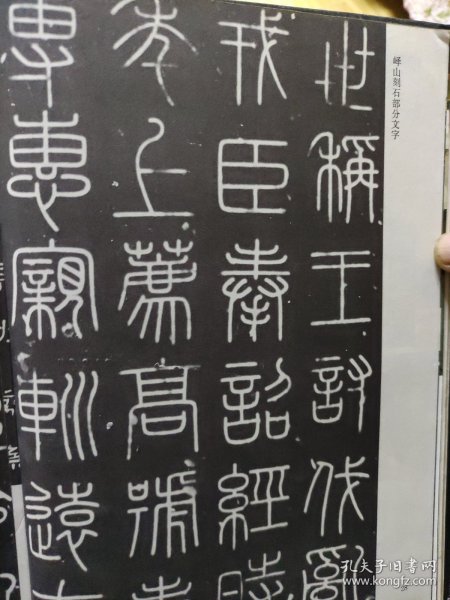 峄山刻石部分文字
世稱王討伐亂
戎臣奉詔經時
年上薦高號孝
專惠寴䡅遠方
孔夫子旧书网
www.kongfz.com